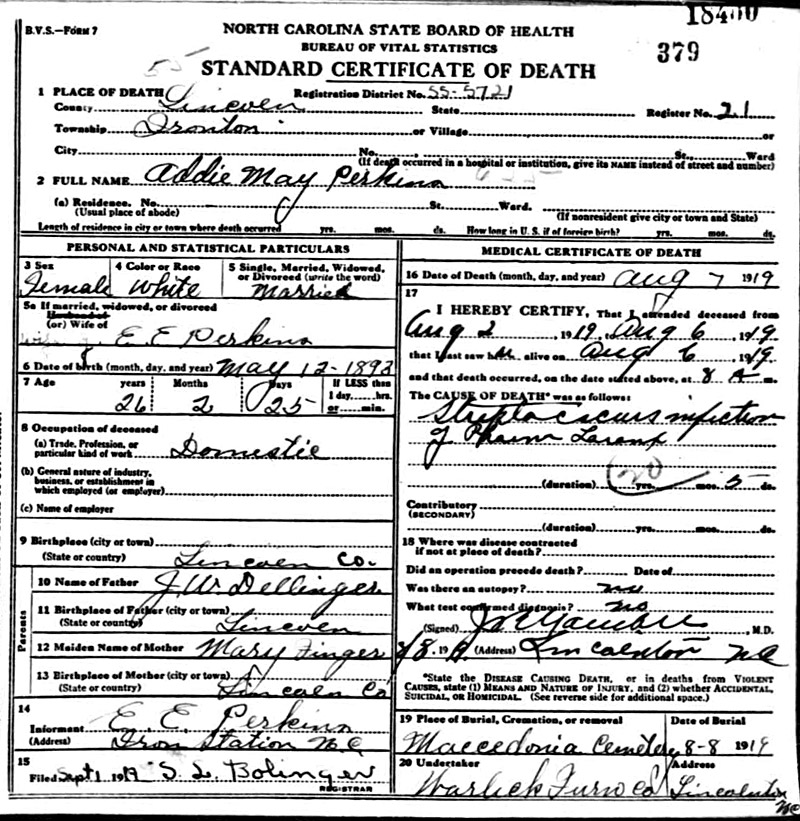 18400
B.V.S.—FORM 7
NORTH CAROLINA STATE BOARD OF HEALTH
BUREAU OF VITAL STATISTICS
379
STANDARD CERTIFICATE OF DEATH
1 PLACE OF DEATH Registration District No. 55-5721
County Lincoln State Register No. 21
Township Ironton or Village or
City No. St. Ward
(If death occurred in a hospital or institution, give its NAME instead of street and number)
2 FULL NAME Addie May Perkins
(a) Residence. No. St. Ward.
(Usual place of abode) (If nonresident give city or town and State)
Length of residence in city or town where death occurred yrs. mos. ds. How long in U. S. if of foreign birth? yrs. mos. ds.
PERSONAL AND STATISTICAL PARTICULARS
3 Sex 4 Color or Race 5 Single, Married, Widowed, or Divorced (write the word)
Female White Married
5a If married, widowed, or divorced
Husband of
(or) Wife of E. E. Perkins
6 Date of birth (month, day, and year) May 12-1893
7 Age years Months Days If LESS than 1 day,....hrs. or....min.
26 2 25
8 Occupation of deceased
(a) Trade, Profession, or particular kind of work Domestic
(b) General nature of industry, business, or establishment in which employed (or employer)
(c) Name of employer
9 Birthplace (city or town)
(State or country) Lincoln Co.
Parents
10 Name of Father J. W. Dellinger
11 Birthplace of Father (city or town)
(State or country) Lincoln
12 Maiden Name of Mother Mary Finger
13 Birthplace of Mother (city or town)
(State or country) Lincoln Co
14
Informant E. E. Perkins
(Address) Iron Station N.C.
15
Filed Sept 1, 1919 S. L. Bolinger
REGISTRAR
MEDICAL CERTIFICATE OF DEATH
16 Date of Death (month, day, and year) Aug 7 1919
17
I HEREBY CERTIFY, That I attended deceased from
Aug 2, 1919, to Aug 6, 1919
that I last saw h alive on Aug 6, 1919
and that death occurred, on the date stated above, at 8 A m.
The CAUSE OF DEATH* was as follows:
Streptococcus infection
of
(duration) yrs. mos. 5 ds.
Contributory
(SECONDARY)
(duration) yrs. mos. ds.
18 Where was disease contracted
if not at place of death?
Did an operation precede death? Date of
Was there an autopsy? no
What test confirmed diagnosis? no
(Signed) M.D.
8/8, 19 (Address) Lincolnton NC
*State the DISEASE CAUSING DEATH, or in deaths from VIOLENT
CAUSES, state (1) MEANS AND NATURE OF INJURY, and (2) whether ACCIDENTAL,
SUICIDAL, OR HOMICIDAL. (See reverse side for additional space.)
19 Place of Burial, Cremation, or removal Date of Burial
Macedonia Cemetery 8-8 1919
20 Undertaker Address
Warlick Furn Co Lincolnton NC